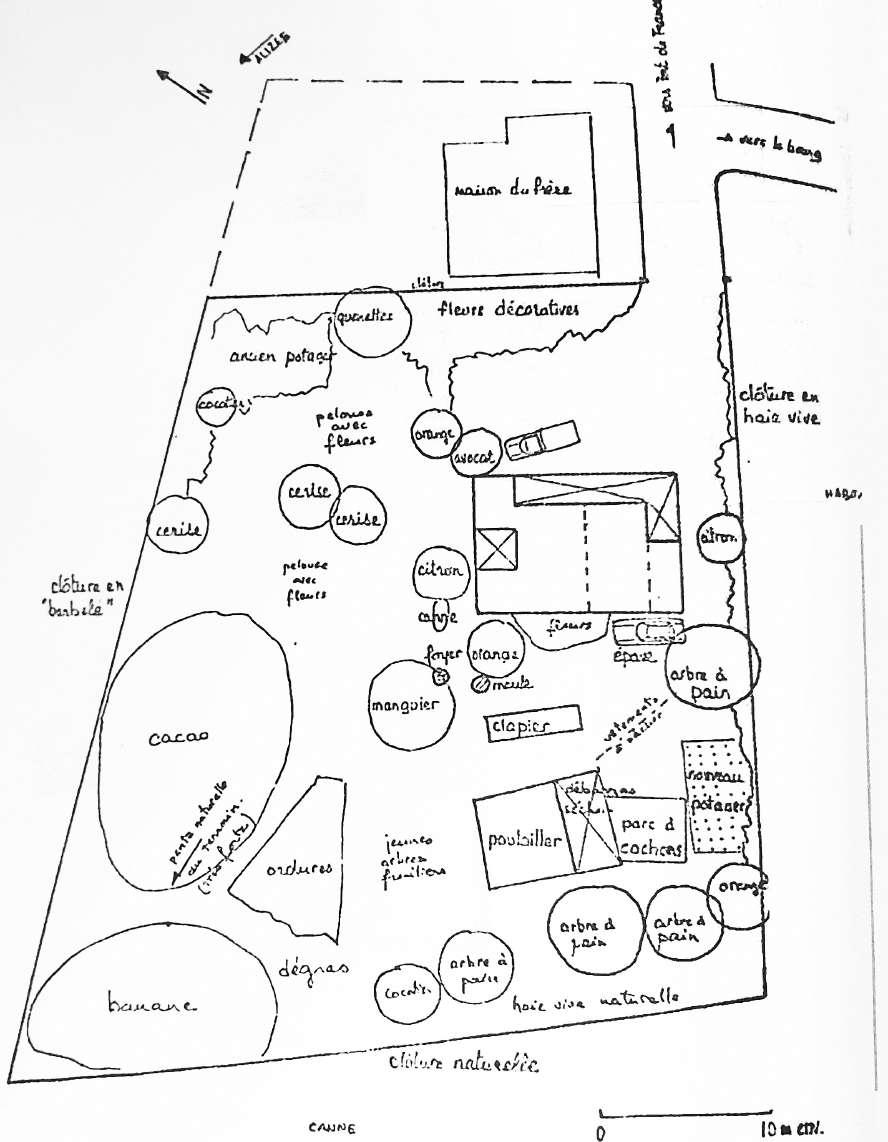 ALIZÉS
N
vers le bourg
maison du frère
quenettes
fleurs décoratives
ancien potager
cocotier
pelouse
avec
fleurs
orange
avocat
clôture en
haie vive
cerise
cerise
cerise
citron
citron
pelouse
avec
fleurs
clôture en
"barbelé"
canne
fleurs
foyer
orange
épave
arbre à
pain
meule
manguier
clapier
vêtements
à sécher
cacao
nouveau
potager
débarras
poulailler
parc à
cochons
pente naturelle
du terrain
(très forte)
ordures
jeunes
arbres
fruitiers
orange
arbre à
pain
arbre à
pain
dégras
arbre à
pain
cocotier
haie vive naturelle
banane
clôture naturelle
CANNE
0
10 m env.